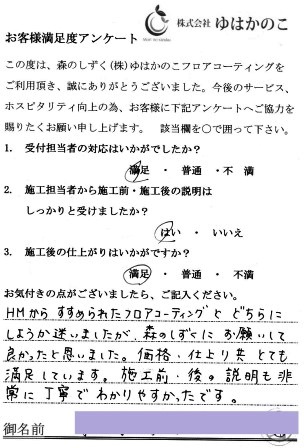 株式会社 ゆはかのこ
お客様満足度アンケート
この度は、森のしずく(株)ゆはかのこフロアコーティングを
ご利用頂き、誠にありがとうございました。今後のサービス、
ホスピタリティ向上の為、お客様に下記アンケートへご協力を
賜りたくお願い申し上げます。 該当欄を○で囲って下さい。
1. 受付担当者の対応はいかがでしたか？
満足 ・ 普通 ・不 満
2. 施工担当者から施工前・施工後の説明は
しっかりと受けましたか？
はい ・ いいえ
3. 施工後の仕上がりはいかがですか？
満足 ・ 普通 ・ 不満
お気付きの点がございましたら、ご記入ください。
HMから すすめられたフロアコーティングと どちらに
しようか迷いましたが、森のしずくに お願いして
良かったと思いました。価格・仕上り共 とても
満足しています。施工前・後の 説明も非
常に丁寧で わかりやすかったです。
御名前